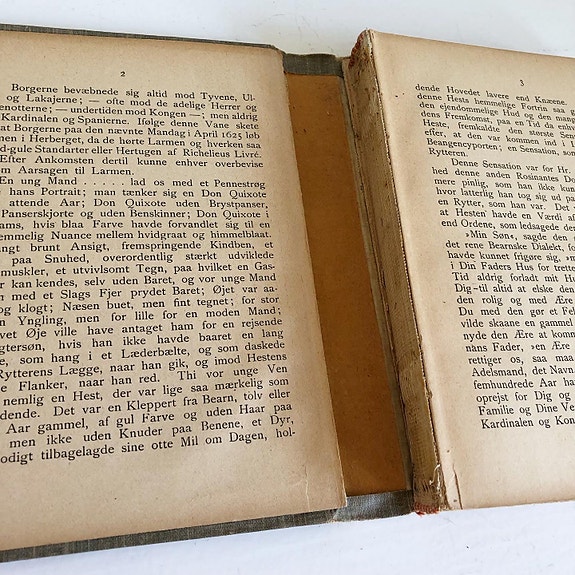 2
Borgerne bevæbnede sig altid mod Tyvene, Ul-
og Lakajerne; — ofte mod de adelige Herrer og
enotterne; — undertiden mod Kongen —; men aldrig
Kardinalen og Spanierne. Ifølge denne Vane skete
at Borgerne paa den nævnte Mandag i April 1625 løb
n i Herberget, da de hørte Larmen og hverken saa
d-gule Standarter eller Hertugen af Richelieus Livré.
Efter Ankomsten dertil kunne enhver overbevise
om Aarsagen til Larmen.
En ung Mand . . . . . . lad os med et Pennestrøg
e hans Portrait: man tænker sig en Don Quixote
attende Aar; Don Quixote uden Brystpanser,
Panserskjorte og uden Benskinner; Don Quixote i
ams, hvis blaa Farve havde forvandlet sig til en
emmelig Nuance mellem hvidgraat og himmelblaat.
angt brunt Ansigt, fremspringende Kindben, et
paa Snuhed, overordentlig stærkt udviklede
muskler, et utvivlsomt Tegn, paa hvilket en Gas-
r kan kendes, selv uden Baret, og vor unge Mand
n med et Slags Fjer prydet Baret; Øjet var aa-
g klogt; Næsen buet, men fint tegnet; for stor
n Yngling, men for lille for en moden Mand;
vet Øje ville have antaget ham for en rejsende
gtersøn, hvis han ikke havde baaret en lang
e, som hang i et Læderbælte, og som daskede
Rytterens Lægge, naar han gik, og imod Hestens
e Flanker, naar han red. Thi vor unge Ven
nemlig en Hest, der var lige saa mærkelig som
dende. Det var en Kleppert fra Bearn, tolv eller
Aar gammel, af gul Farve og uden Haar paa
men ikke uden Knuder paa Benene, et Dyr,
odigt tilbagelagde sine otte Mil om Dagen, hol-
3
dende Hovedet lavere end Knæene.
denne Hests hemmelige Fortrin saa g
den ejendommelige Hud og den mang
dens Fremkomst, paa en Tid da enhv
Heste, fremkaldte den største Sens
efter, at den var kommen ind i M
Beangencyporten; en Sensation, som
Rytteren.
Denne Sensation var for Hr.
hed denne anden Rosinantes Do
mere pinlig, som han ikke kun
hvor latterlig han tog sig ud pa
en Rytter, som han var. Det
at Hesten havde en Værdi af
end Ordene, som ledsagede den
»Min Søn«, sagde den
det rene Bearnske Dialekt, for
havde kunnet frigøre sig, »
i Din Faders Hus for trette
Tid aldrig forladt mit H
Dig til at elske den
den rolig og med Ære
Du med den gør et Fel
vilde skaane en gammel
nyde den Ære at komm
näns Fader, »en Ære
rettiger os, saa maa
Adelsmand, det Navn
femhundrede Aar ha
oprejst for Dig og
Familie og Dine Ve
Kardinalen og Kon